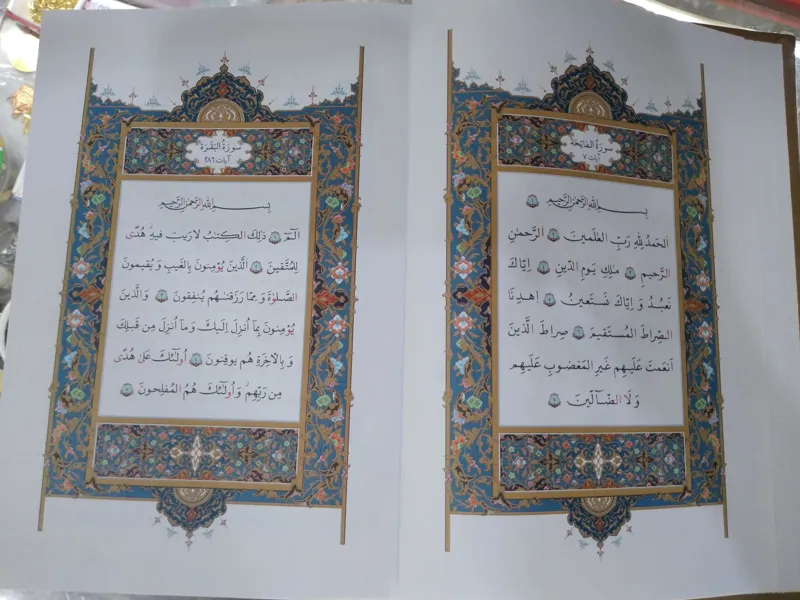 سورة الفاتحة
آیات ۷
بِسْمِ اللهِ الرَّحْمٰنِ الرَّحیمِ
اَلحَمدُ لِلّٰهِ رَبِّ العٰلَمینَ اَلرَّحمٰنِ
الرَّحیمِ مٰلِكِ یَومِ الدّینِ اِیّاكَ
نَعبُدُ وَ اِیّاكَ نَستَعینُ اِهدِنَا
الصِّراطَ المُستَقیمَ صِراطَ الَّذینَ
اَنعَمتَ عَلَیهِم غَیرِ المَغضوبِ عَلَیهِم
وَ لَا الضّآلّینَ
سورة البقرة
آیات ۲۸۶
بِسْمِ اللهِ الرَّحْمٰنِ الرَّحیمِ
الٓمٓ ذٰلِكَ الكِتٰبُ لا رَیبَ فیهِ هُدًی
لِلمُتَّقینَ الَّذینَ یُؤمِنونَ بِالغَیبِ وَ یُقیمونَ
الصَّلوٰةَ وَ مِمّا رَزَقنٰهُم یُنفِقونَ وَ الَّذینَ
یُؤمِنونَ بِمآ اُنزِلَ اِلَیكَ وَ مآ اُنزِلَ مِن قَبلِكَ
وَ بِالآخِرَةِ هُم یوقِنونَ اُولٰٓئِكَ عَلیٰ هُدًی
مِن رَبِّهِم وَ اُولٰٓئِكَ هُمُ المُفلِحونَ